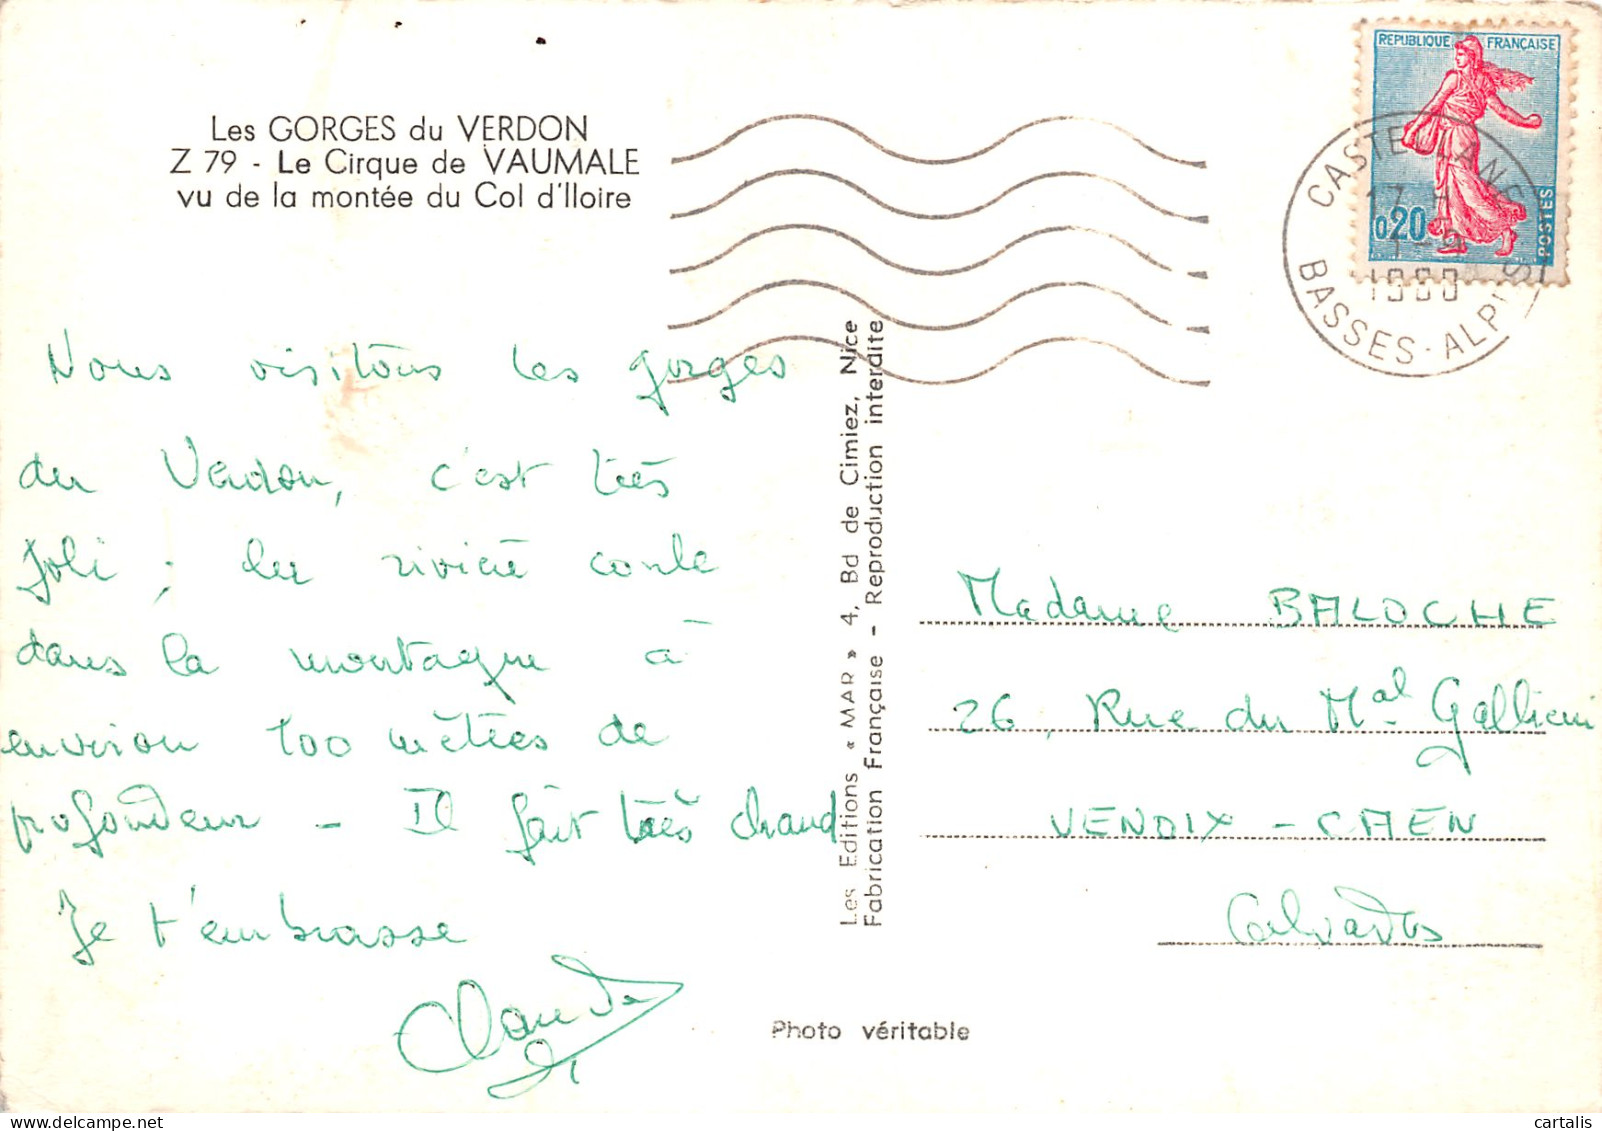 Les GORGES du VERDON
Z 79 - Le Cirque de VAUMALE
vu de la montée du Col d'Iloire
Nous visitons les gorges
du Verdon, c'est très
joli ; la rivière coule
dans la montagne à
environ 100 mètres de
profondeur - Il fait très chaud
Je t'embrasse
Claude
Les Editions « MAR » 4, Bd de Cimiez, Nice
Fabrication Française - Reproduction interdite
Photo véritable
REPUBLIQUE FRANÇAISE
0,20
POSTES
CASTELLANE
17 H
BASSES-ALPES
Madame BALOCHE
26, Rue du Mal Gallieni
VENOIX - CAEN
Calvados
cartalis
delcampe.net